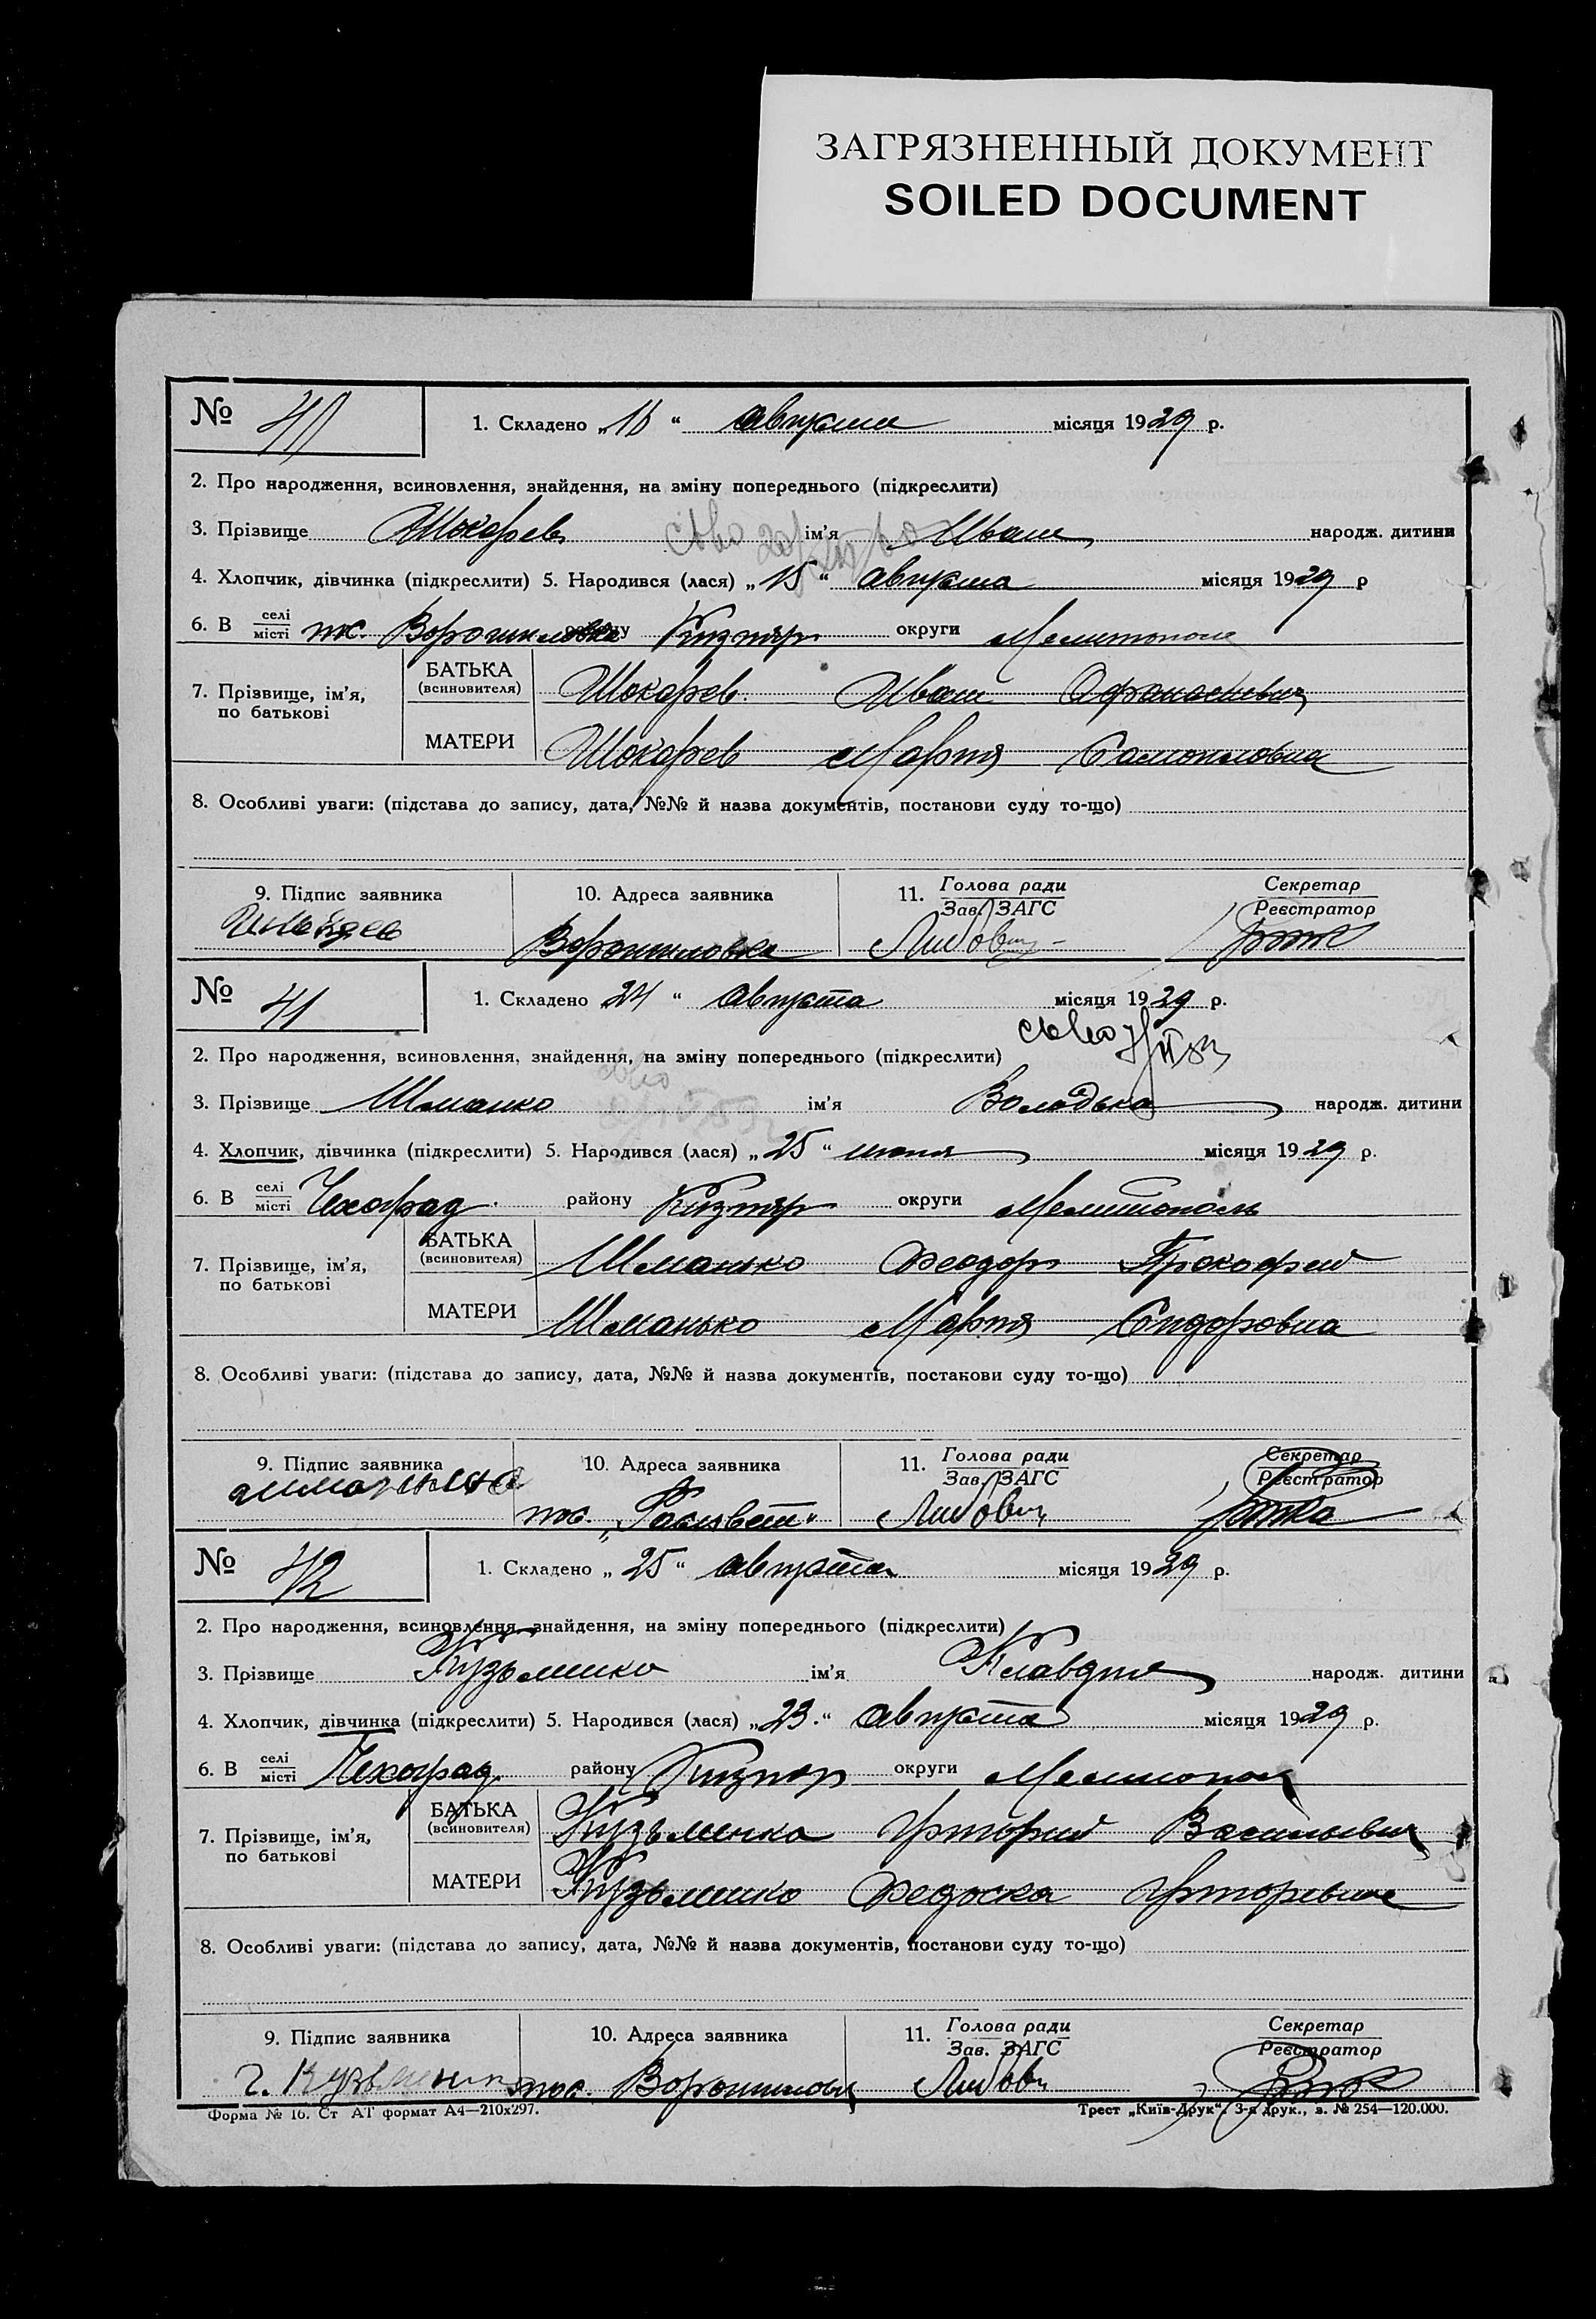 ЗАГРЯЗНЕННЫЙ ДОКУМЕНТ
SOILED DOCUMENT
№ 40
1. Складено „16“ августа місяця 1929 р.
2. Про народження, всиновлення, знайдення, на зміну попереднього (підкреслити)
3. Прізвище Шокарев ім’я Иван народж. дитини
4. Хлопчик, дівчинка (підкреслити) 5. Народився (лася) „15“ августа місяця 1929 р
6. В селі місті пос. Ворошиловка району Кизияр округи Мелитополь
7. Прізвище, ім’я, по батькові
БАТЬКА (всиновителя) Шокарев Иван Афанасиевич
МАТЕРИ Шокарев Мария
8. Особливі уваги: (підстава до запису, дата, №№ й назва документів, постанови суду то-що)
9. Підпис заявника 10. Адреса заявника 11. Голова ради Зав. ЗАГС Секретар Реєстратор
Ворошиловка
№ 41
1. Складено 24 “ августа місяця 1929 р.
2. Про народження, всиновлення, знайдення, на зміну попереднього (підкреслити)
3. Прізвище Шманко ім’я Володька народж. дитини
4. Хлопчик, дівчинка (підкреслити) 5. Народився (лася) „25“ місяця 1929 р.
6. В селі місті Чехоград району Кизияр округи Мелитополь
7. Прізвище, ім’я, по батькові
БАТЬКА (всиновителя) Шманько Феодор Прокофий
МАТЕРИ Шманько Мария Сидоровна
8. Особливі уваги: (підстава до запису, дата, №№ й назва документів, постанови суду то-що)
9. Підпис заявника 10. Адреса заявника 11. Голова ради Зав. ЗАГС Секретар Реєстратор
пос. „Расцвет“
№ 42
1. Складено „25“ августа місяця 1929 р.
2. Про народження, всиновлення, знайдення, на зміну попереднього (підкреслити)
3. Прізвище Кузьменко ім’я Клавдия народж. дитини
4. Хлопчик, дівчинка (підкреслити) 5. Народився (лася) „23.“ августа місяця 1929 р.
6. В селі місті Чехоград району Кизияр округи Мелитополь
7. Прізвище, ім’я, по батькові
БАТЬКА (всиновителя) Кузьменко Григорий Васильевич
МАТЕРИ Кузьменко Федоска Григоревна
8. Особливі уваги: (підстава до запису, дата, №№ й назва документів, постанови суду то-що)
9. Підпис заявника 10. Адреса заявника 11. Голова ради Зав. ЗАГС Секретар Реєстратор
Г. Кузьменко пос. Ворошиловк
Форма № 16. Ст АТ формат А4—210х297. Трест „Київ-Друк“. 3-я друк., з. № 254—120.000.